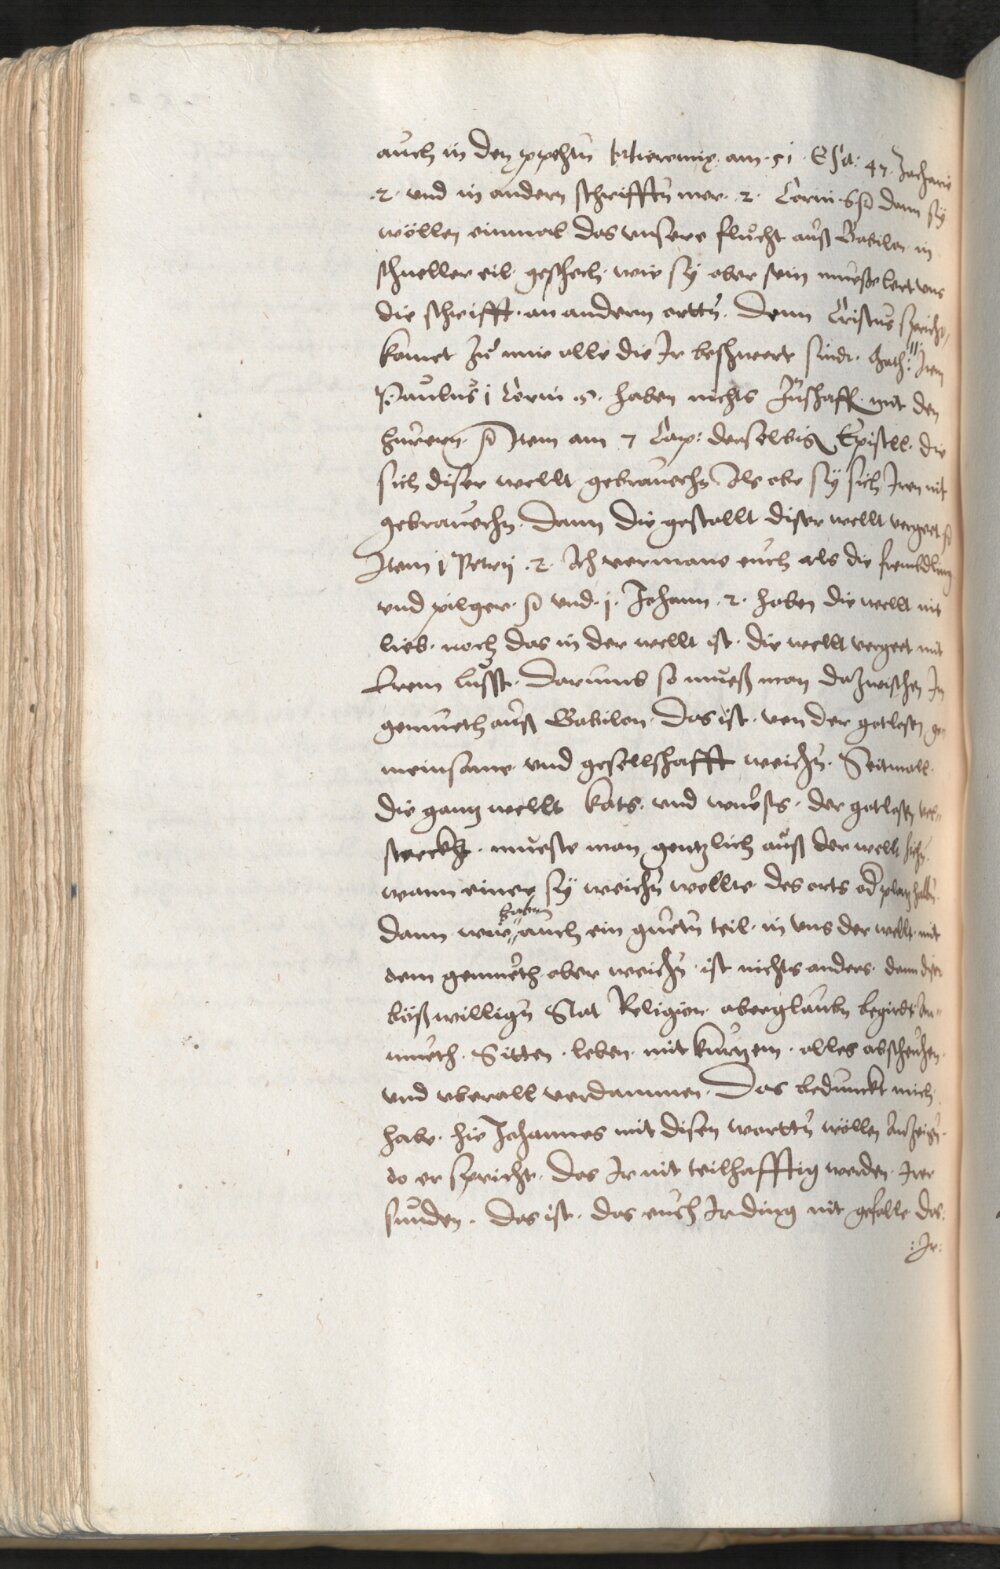 auch in den ppehtn Hieremie am 51 Esa: 47. Zacharie
.2. vnd in andern schrifften mer. 2. Corin. 6 dann sy
wöllen einmal das vnsere flucht auß Babilon in
schneller eil geschech. wie sy aber sein mueße lert vns
die schrifft. an andern ortten. Denn Cristus spricht
komet zu mir alle die Ir beschwert sindt. Math: 11 Item
Paulus 1 Corin .5. haben nichts zuschaff mit den
huren. Item am 7 Cap: derselbig Epistll. die
sich diser wellt gebrauchn Als ob sy sich Iren nit
gebrauchn. Dann die gestallt diser wellt vergeet
Item j Petrij .2. Ich vermane euch als die frembdling
vnd pilger. vnd. j. Johann .2. haben die wellt nit
lieb. noch das in der wellt ist. die wellt vergeet mit
Irem lusst. Darumb so mueß man dazwischen In
gemueth auß Babilon. Das ist. von der gotlosen ge
meinsame vnd gesellschafft weichn. Seitmall
die gantz wellt kats. vnd wuests. der gotlosen
steckt. mueste man gentzlich auß der wellt
wann einer sy weichn wollte des orts od platz halbn
dann wir haben auch ein guetn teil in vns der wellt. mit
dem gemueth aber weichn ist nichts anders. dann der
bößwilligen Rat Religion aberglaubn begirdt An
mueth. Sitten. leben. mit kurtzem. alles abscheuhen
vnd vberall verdammen. Das bedunckt mich
habe. hie Johannes mit disen wortten wöllen Anzeign
do er spricht. Das Ir nit teilhafftig werden. Irer
sunden. Das ist. das euch Ir ding nit gefalle Das
:Ir: